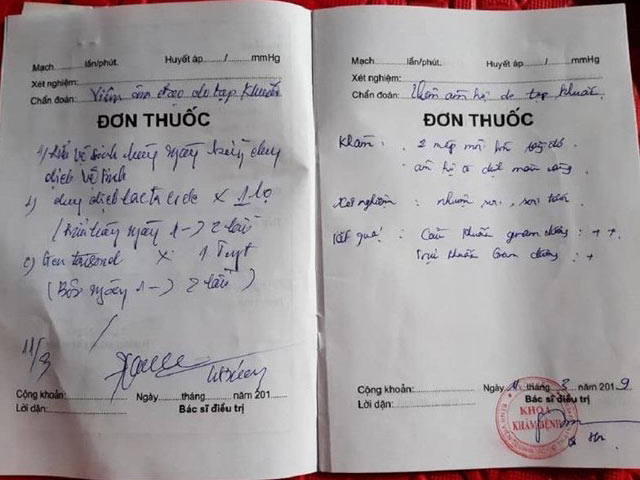 Mạch............lần/phút. Huyết áp......../........mmHg
Xét nghiệm:
Chẩn đoán: Viêm âm đạo do tạp khuẩn
ĐƠN THUỐC
vệ sinh hàng ngày bằng dung
dịch vệ sinh
1) dung dịch lactacide x 1 lọ
ngày 1 -> 2 lần
2) x 1 Tuýt
(Bôi ngày 1 -> 2 lần)
11/3
Cộng khoản:
Ngày........tháng........năm 201...
Lời dặn:
Bác sĩ điều trị
Mạch............lần/phút. Huyết áp......../........mmHg
Xét nghiệm:
Chẩn đoán: Viêm âm hộ do tạp khuẩn.
ĐƠN THUỐC
Khám: 2 mép
âm hộ
Xét nghiệm: nhuộm soi, soi tươi
Kết quả: Cầu khuẩn gram dương: ++
Trực khuẩn Gram dương: +
Cộng khoản:
Ngày 11 tháng 3 năm 2019
Lời dặn:
Bác sĩ điều trị
KHOA
KHÁM BỆNH